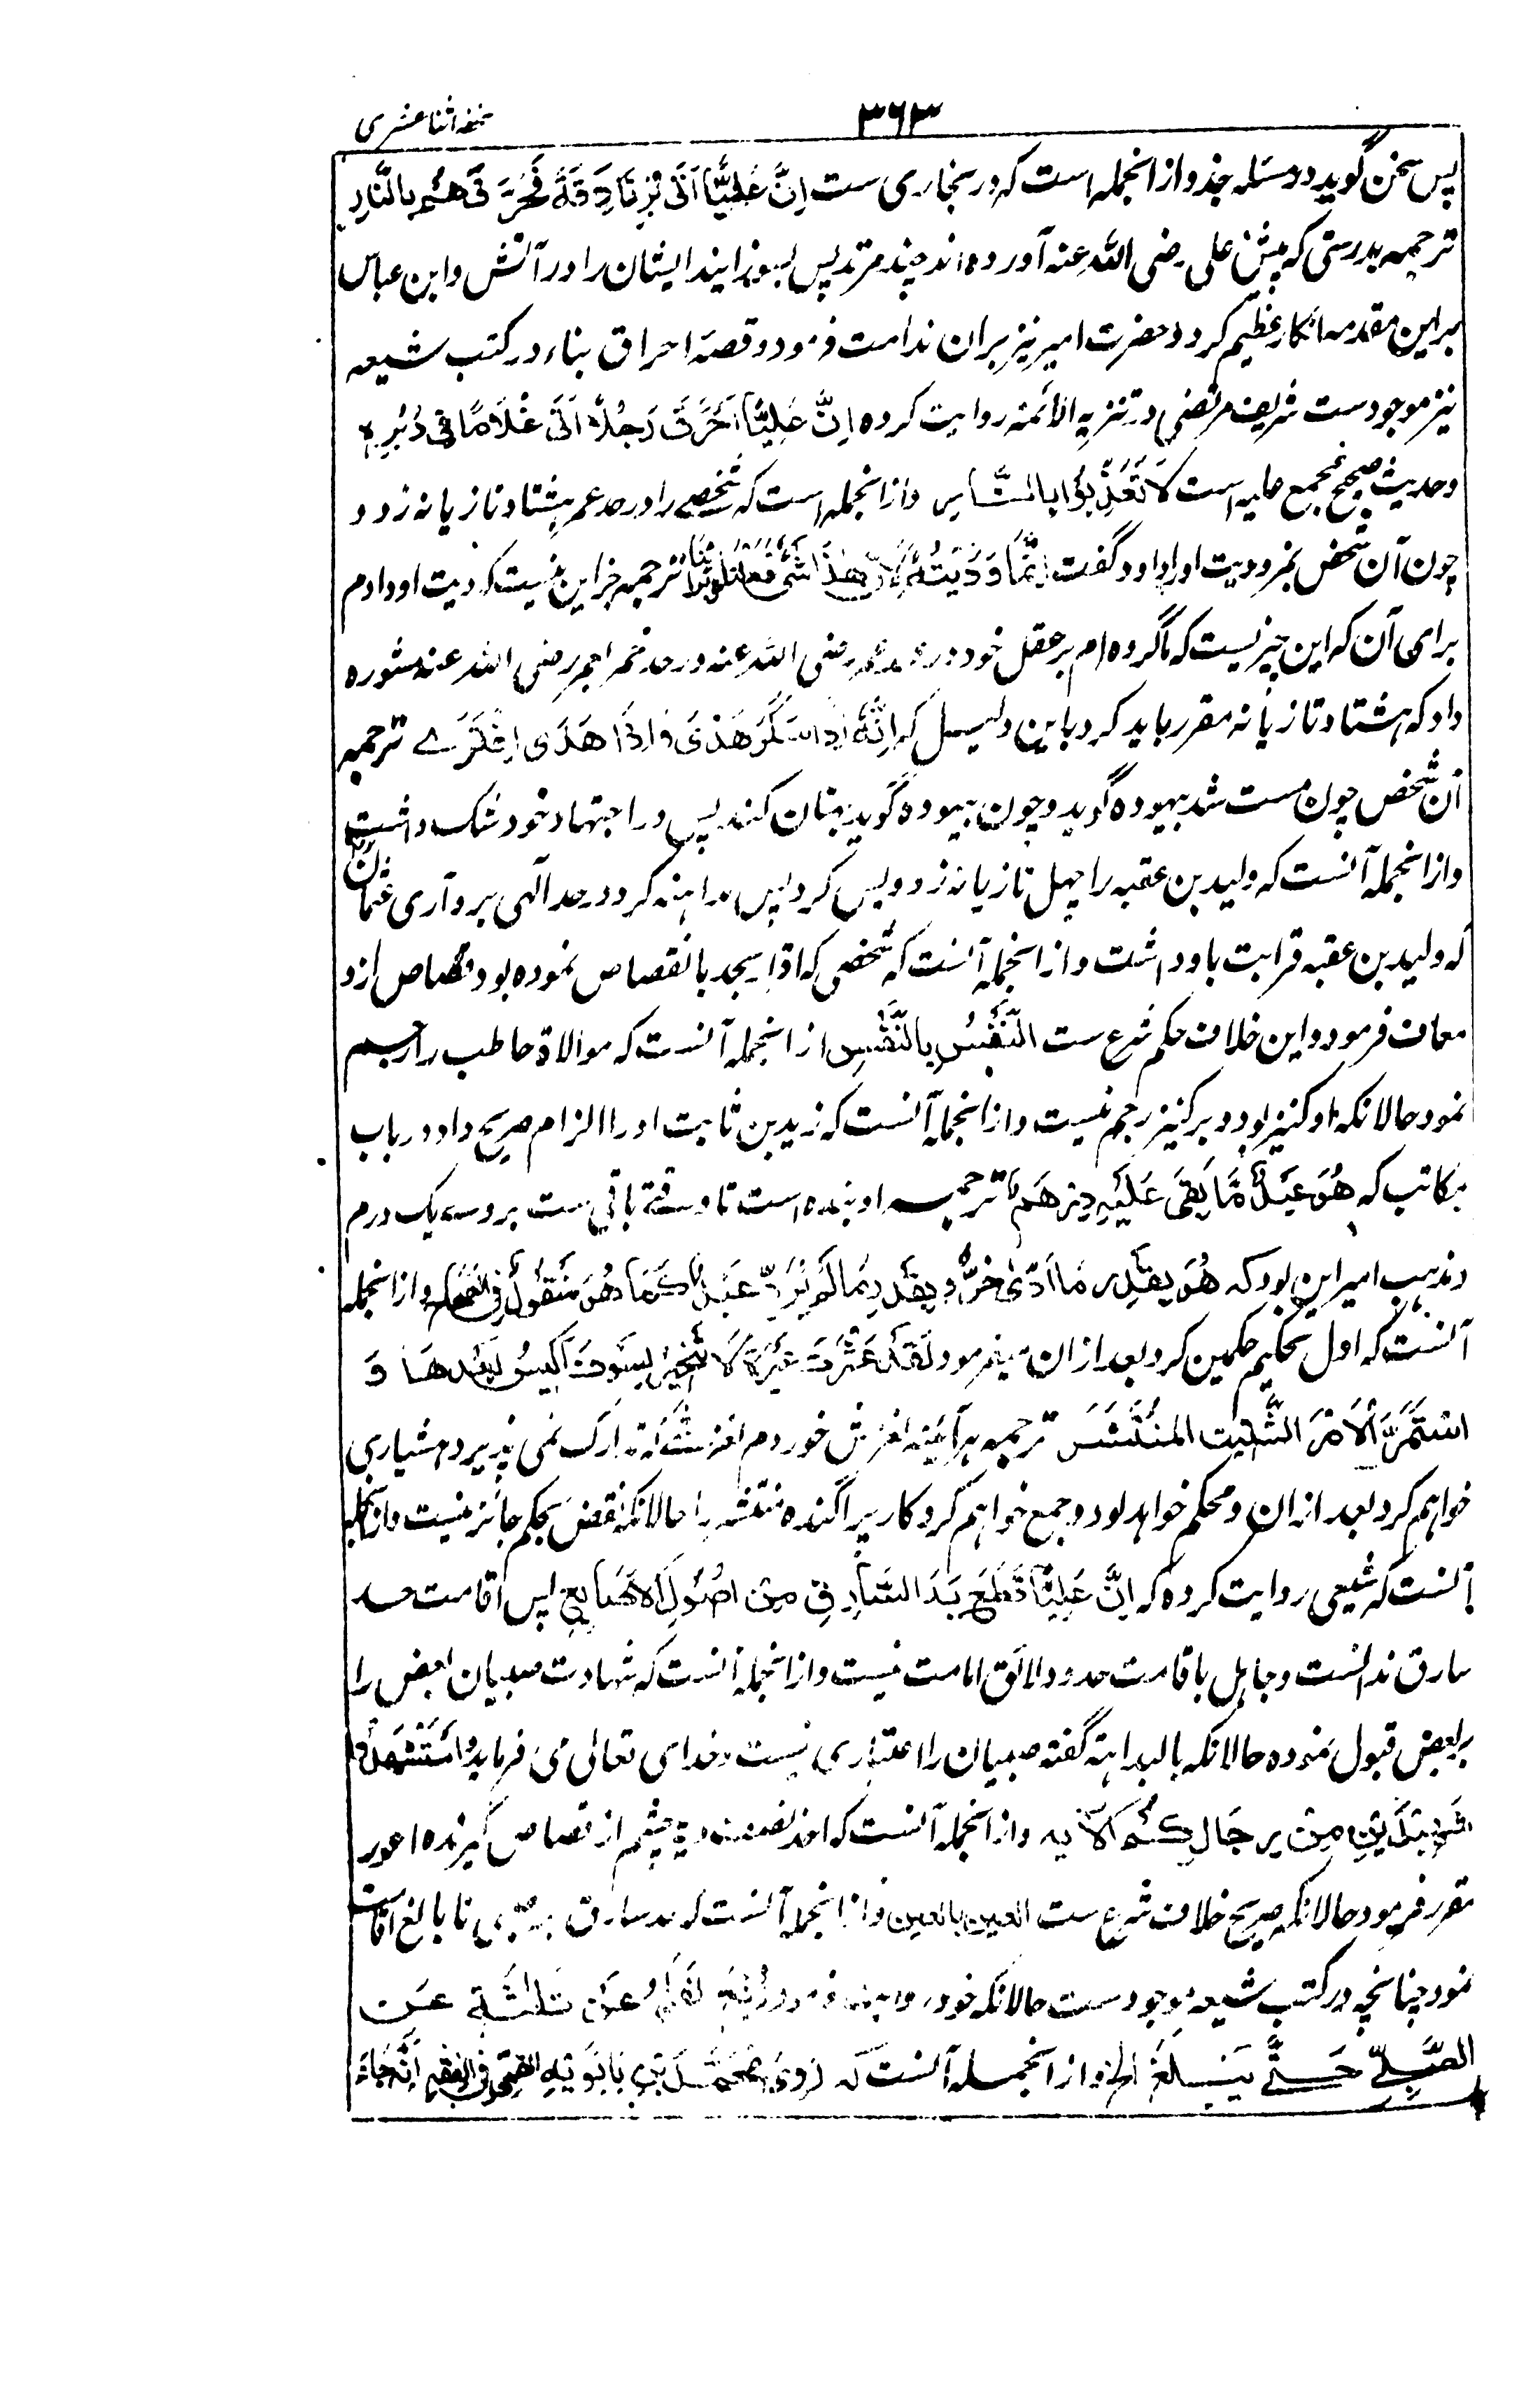 ۳۶۳
تحفه اثنا عشری
پس سخن گوید در مسئله جد و ازانجمله است که در بخاری ست اِنَّ عَلِیًّا اَتٰی بِزَنَادِقَةٍ فَحَرَّقَهُمْ بِالنَّارِ
ترجمه بدرستی که پیش علی رضی الله عنه آورده اند چند مرتد پس بسوزانیدایشان را در آتش و ابن عباس
براین مقدمه انکار عظیم کرد و حضرت امیر نیز بران ندامت فرمود و قصه احراق بناء در کتب شیعه
نیز موجود ست شریف مرتضی در تنزیه الائمه روایت کرده اِنَّ عَلِیًّا اَحْرَقَ رَجُلًا اَتٰی غُلَامًا فِی دُبُرِهٖ
و حدیث صحیح مجمع علیه است لَا تُعَذِّبُوْا بِالنَّارِ و ازانجمله است که شخصی را در حد خمر هشتاد تازیانه زد و
چون آن شخص بمرد دیت او را داد و گفت اِنَّمَا وَدَیْتُهٗ لِاَنَّ هٰذَا شَیْءٌ فَعَلْنَاهُ بِرَأْیِنَا ترجمه جز این نیست که دیت او دادم
برای آن که این چیزیست که ما کرده ام بر عقل خود در عهد عمر رضی الله عنه در حد خمر امیر رضی الله عنه مشوره
داد که هشتاد تازیانه مقرر باید کرد باین دلیل که اِنَّهٗ اِذَا سَکَرَ هَذٰی وَ اِذَا هَذٰی اِفْتَرٰے ترجمه
آن شخص چون مست شد بیهوده گوید و چون بیهوده گوید بهتان کند پس در اجتهاد خود شک داشت
و ازانجمله آنست که ولید بن عقبه را چهل تازیانه زد و بس کرد پس مداهنه کرد در حد الٰهی بر و آری عثمان
که ولید بن عقبه قرابت باو داشت و ازانجمله آنست که شخصی که اقرار بحد یا قصاص نموده بود قصاص ازو
معاف فرمود و این خلاف حکم شرع ست اَلنَّفْسُ بِالنَّفْسِ ازانجمله آنست که موالاة حاطب را رجم
نمود حالانکه او کنیز بود و بر کنیز رجم نیست و ازانجمله آنست که زید بن ثابت او را الزام صریح داد در باب
مکاتب که هُوَ عَبْدٌ مَا بَقِیَ عَلَیْهِ دِرْهَمٌ ترجمه او بنده است تا وقتے باقی ست بر وے یک درم
و مذهب امیر این بود که هُوَ بِقَدْرِ مَا اَدّٰی حُرٌّ وَ بِقَدْرِ مَا لَمْ یُؤَدِّ عَبْدٌ کَمَا هُوَ مَنْقُوْلٌ و ازانجمله
آنست که اول تحکیم حکمین کرد بعد ازان میفرمود لَقَدْ عَثَرْتُ عَثْرَةً لَا تَنْجَبِرُ سَوْفَ اَکِیْسُ بَعْدَهَا وَ
اَسْتَمِرُّ اَلْاَمْرَ الشَّتِیْتَ الْمُنْتَشِرَ ترجمه هر آئینه لغزش خوردم لغزشی که تدارک نمی پذیرد هشیاری
خواهم کرد بعد ازان و محکم خواهد بود و جمع خواهم کرد کار پراگنده منتشر را حالانکه نقض حکم جائز نیست و ازانجمله
آنست که شیعی روایت کرده که اِنَّ عَلِیًّا قَطَعَ یَدَ السَّارِقِ مِنْ اُصُوْلِ الْاَصَابِعِ پس اقامت حد
سارق ندانست و جاهل باقامت حدود لائق امامت نیست و ازانجمله آنست که شهادت صبیان بعض را
بر بعض قبول نموده حالانکه بالبداهة گفته صبیان را اعتباری نیست خدای تعالی می فرماید وَ اسْتَشْهِدُوْا
شَهِیْدَیْنِ مِنْ رِجَالِکُمْ الآیه و ازانجمله آنست که اخذ نصف دیة چشم از قصاص گیرنده اعور
مقرر فرمود حالانکه صریح خلاف شرع ست العین بالعین و ازانجمله آنست که حد سارق نابالغ اقامت
نمود چنانچه در کتب شیعه موجود ست حالانکه خود فرمود رُفِعَ الْقَلَمُ عَنْ ثَلٰثَةٍ عَنِ
الصَّبِیِّ حَتّٰی یَبْلُغَ الخ و ازانجمله آنست که رَوٰی مُحَمَّدُ بْنُ بَابَوَیْهِ الْقُمِّیُّ فِی الْفَقِیْهِ اَنَّهٗ جَاءَ